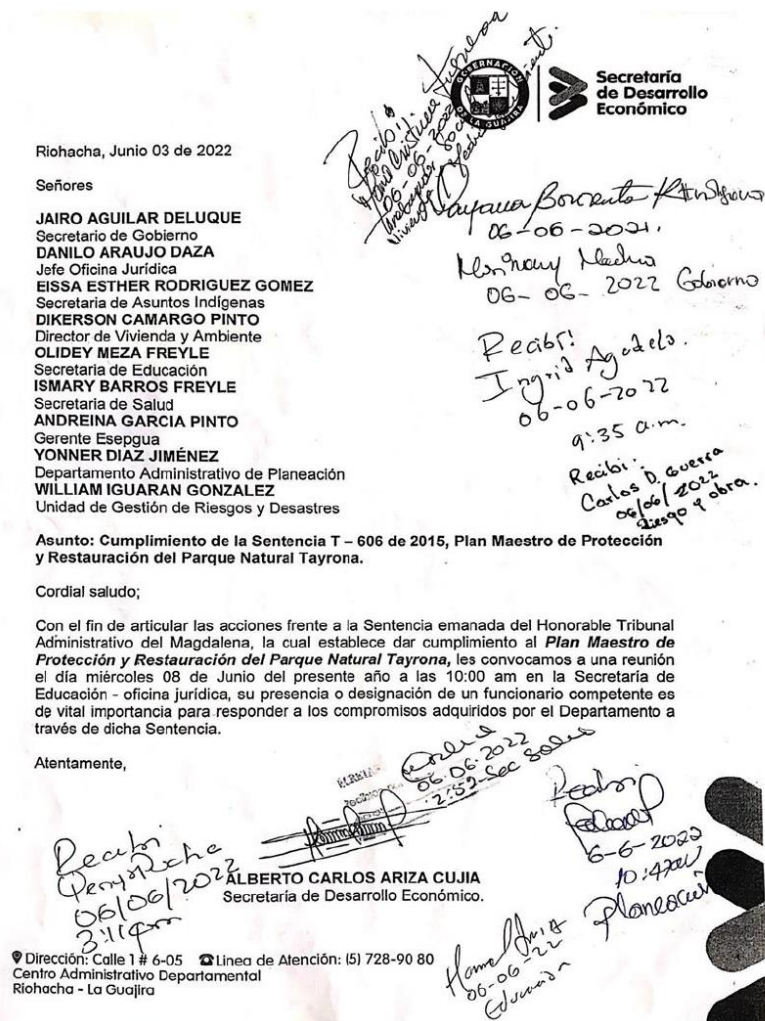 GOBERNACION
DE LA GUAJIRA
Secretaría
de Desarrollo
Económico
Riohacha, Junio 03 de 2022
Señores
JAIRO AGUILAR DELUQUE
Secretario de Gobierno
DANILO ARAUJO DAZA
Jefe Oficina Jurídica
EISSA ESTHER RODRIGUEZ GOMEZ
Secretaria de Asuntos Indígenas
DIKERSON CAMARGO PINTO
Director de Vivienda y Ambiente
OLIDEY MEZA FREYLE
Secretaria de Educación
ISMARY BARROS FREYLE
Secretaria de Salud
ANDREINA GARCIA PINTO
Gerente Esepgua
YONNER DIAZ JIMÉNEZ
Departamento Administrativo de Planeación
WILLIAM IGUARAN GONZALEZ
Unidad de Gestión de Riesgos y Desastres
Recibi!!
06-06-2022
06-06-2021.
06-06-2022 Gobierno
Recibí!
Ingrid Agudelo.
06-06-2022
9:35 a.m.
Recibi.
Carlos D. Guerra
06/06/2022
Riesgo y obra.
Asunto: Cumplimiento de la Sentencia T – 606 de 2015, Plan Maestro de Protección
y Restauración del Parque Natural Tayrona.
Cordial saludo;
Con el fin de articular las acciones frente a la Sentencia emanada del Honorable Tribunal
Administrativo del Magdalena, la cual establece dar cumplimiento al Plan Maestro de
Protección y Restauración del Parque Natural Tayrona, les convocamos a una reunión
el día miércoles 08 de Junio del presente año a las 10:00 am en la Secretaría de
Educación - oficina jurídica, su presencia o designación de un funcionario competente es
de vital importancia para responder a los compromisos adquiridos por el Departamento a
través de dicha Sentencia.
Atentamente,
06.06.2022
2:52-Sec Salud
Recibi
06/06/2022
3:11pm
Recibi
6-6-2022
10:47am
Planeación
ALBERTO CARLOS ARIZA CUJIA
Secretaría de Desarrollo Económico.
06-06-22
Educación
Dirección: Calle 1 # 6-05 Linea de Atención: (5) 728-90 80
Centro Administrativo Departamental
Riohacha - La Guajira